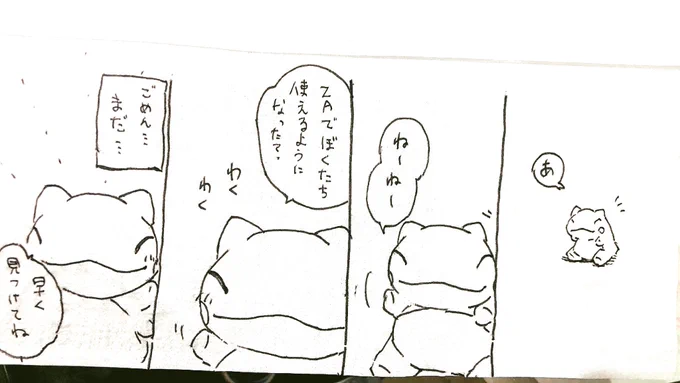 あ
ねーねー
ZAでぼくたち
使えるように
なった?
わく
わく
ごめん…
まだ…
早く
見つけてね